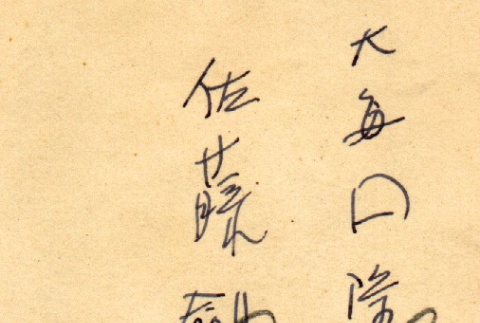 大毎口
佐藤